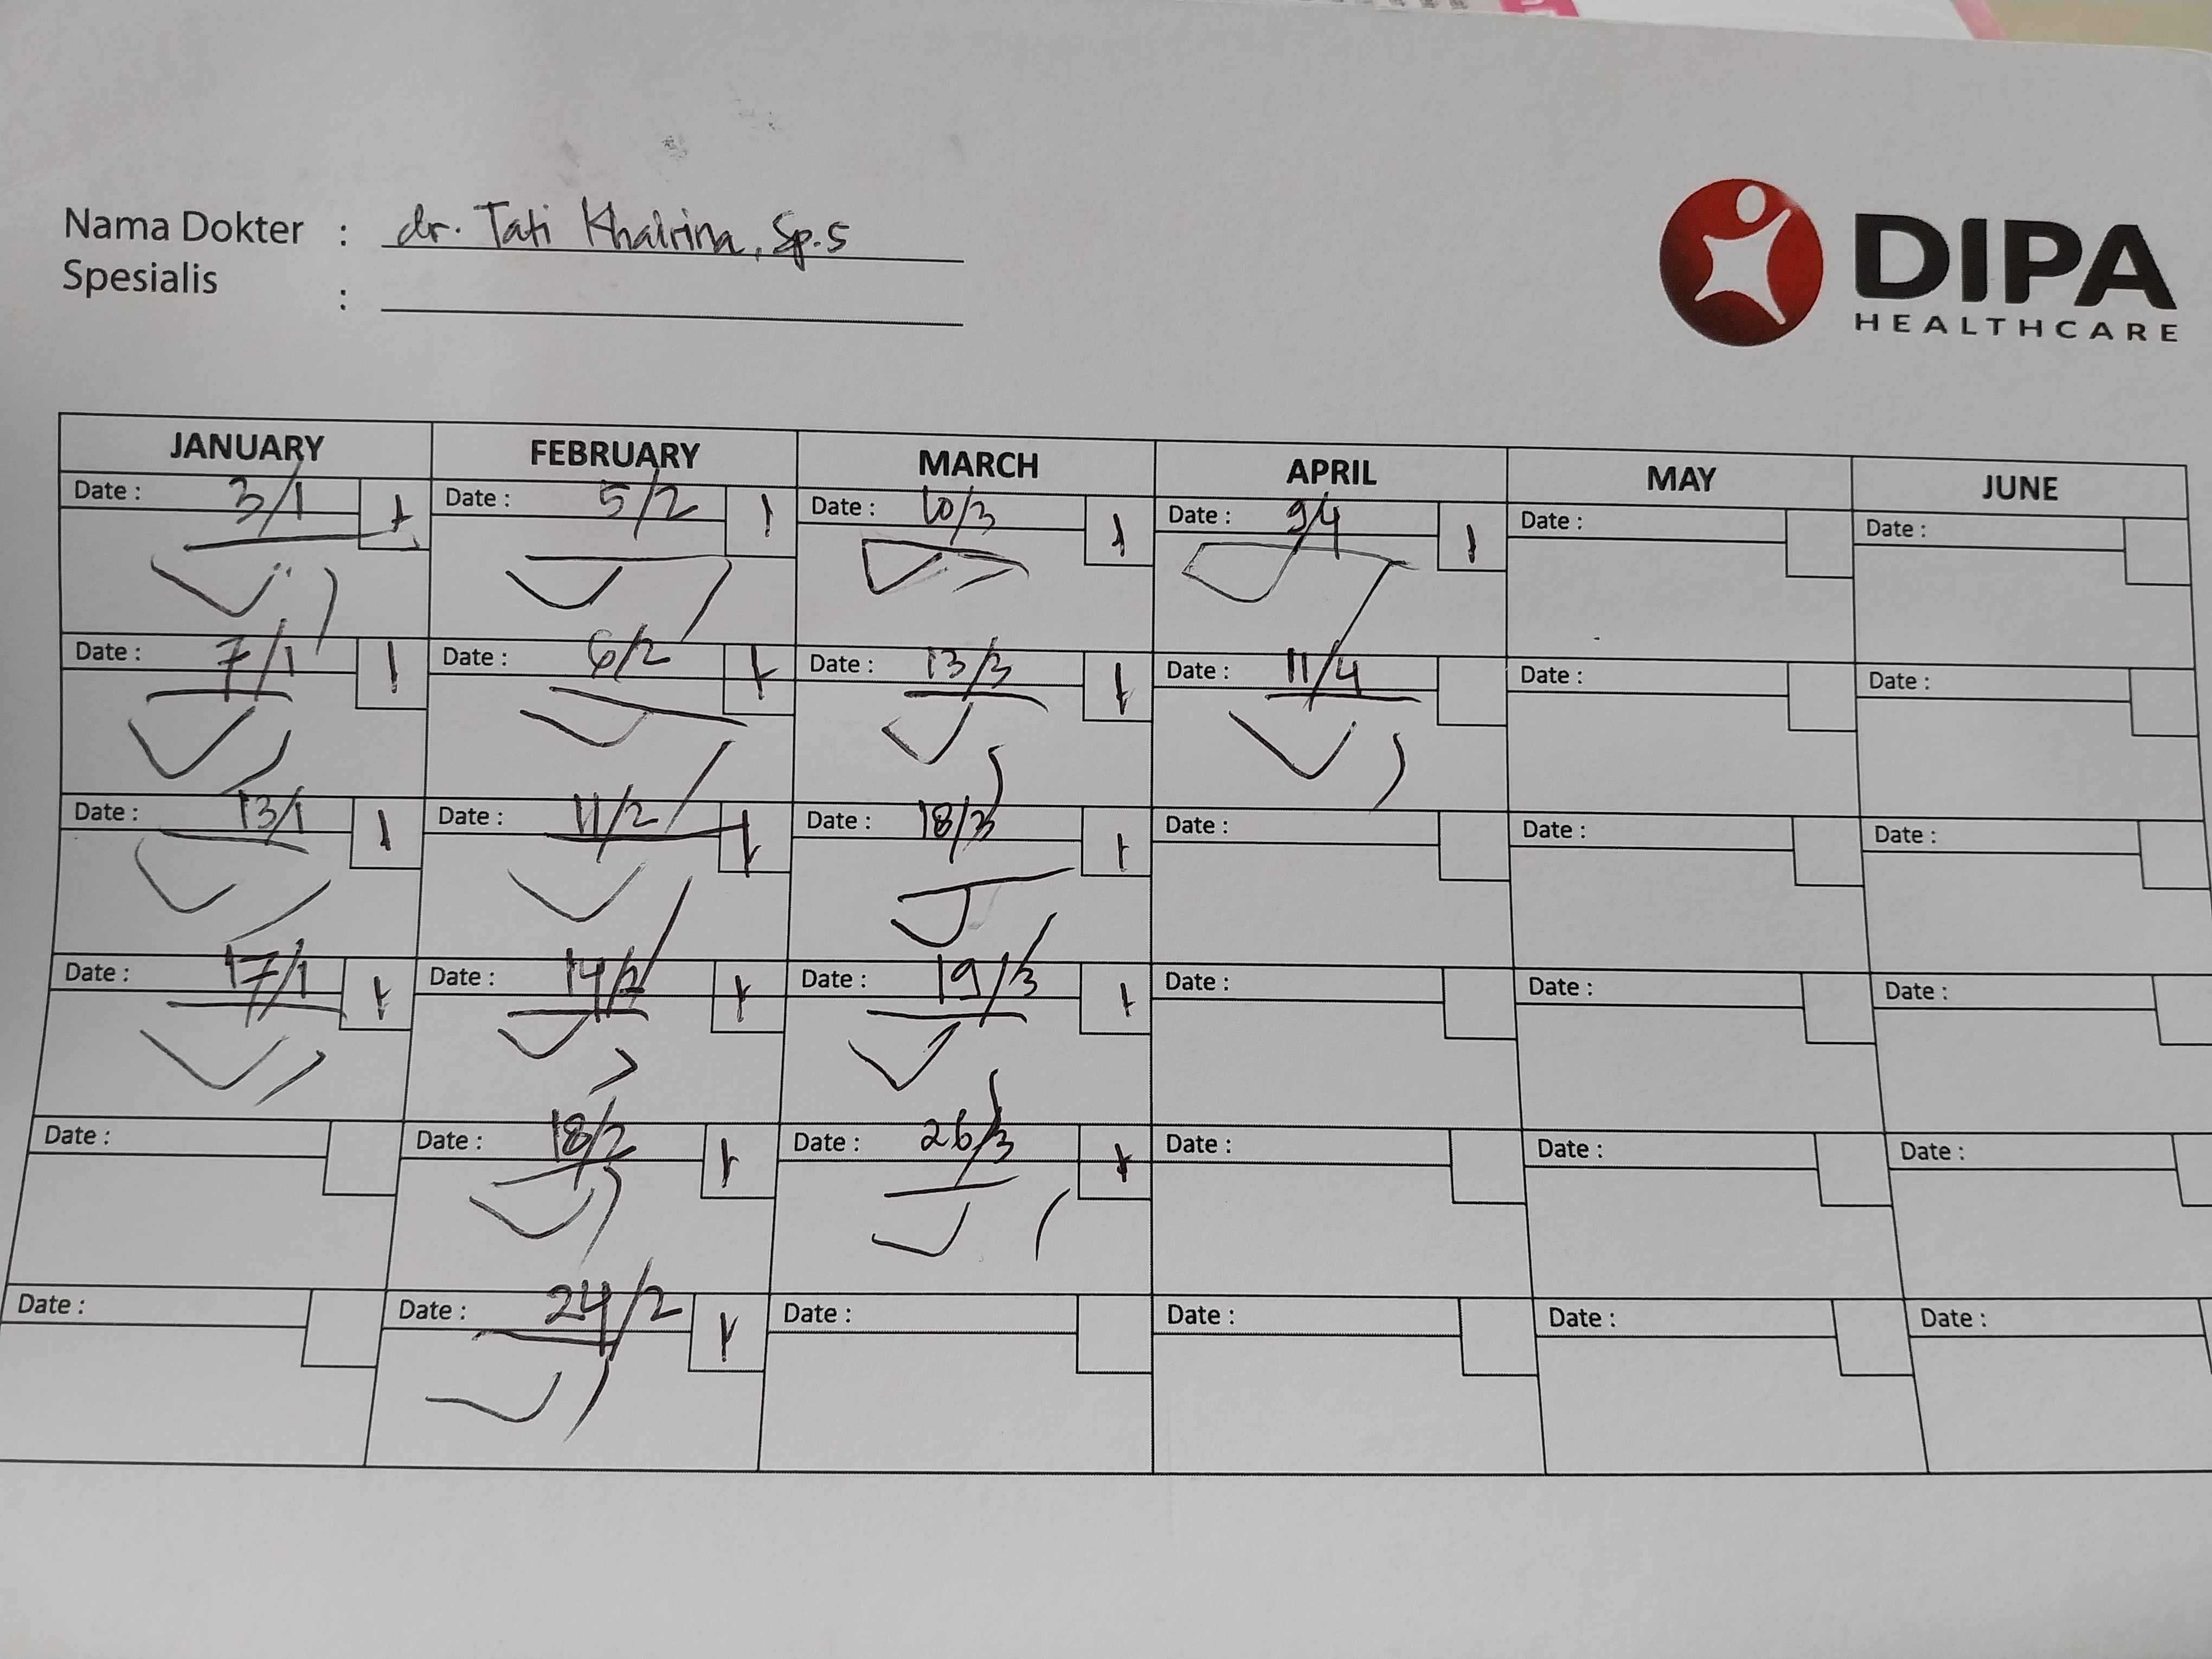 Nama Dokter : dr. Tati Khairina, Sp.S
Spesialis :
DIPA
HEALTHCARE
JANUARY FEBRUARY MARCH APRIL MAY JUNE
Date : 3/1 Date : 5/2 Date : 10/3 Date : 9/4 Date : Date :
Date : 7/1 Date : 6/2 Date : 13/3 Date : 11/4 Date : Date :
Date : 13/1 Date : 11/2 Date : 18/3 Date : Date : Date :
Date : 17/1 Date : 14/2 Date : 19/3 Date : Date : Date :
Date : Date : 18/2 Date : 26/3 Date : Date : Date :
Date : Date : 24/2 Date : Date : Date : Date :